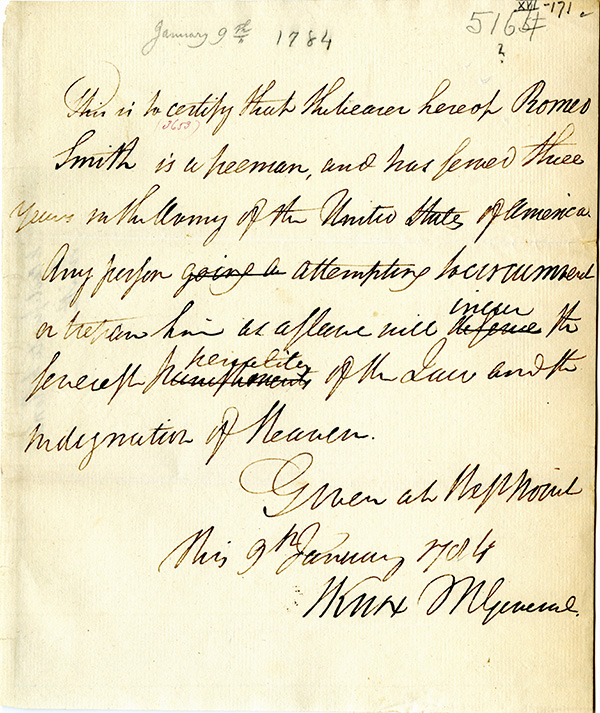 XVI -171
5164
?
January 9th 1784
This is to certify that the bearer hereof Romeo
(3653)
Smith is a freeman, and has served three
years in the Army of the United States of America.
Any person going a attempting to circumvent
or trepan him as a slave will defence incur the
severest punishments penalties of the Law and the
indignation of Heaven.
Given at West Point
this 9th January 1784
HKnox MGeneral.